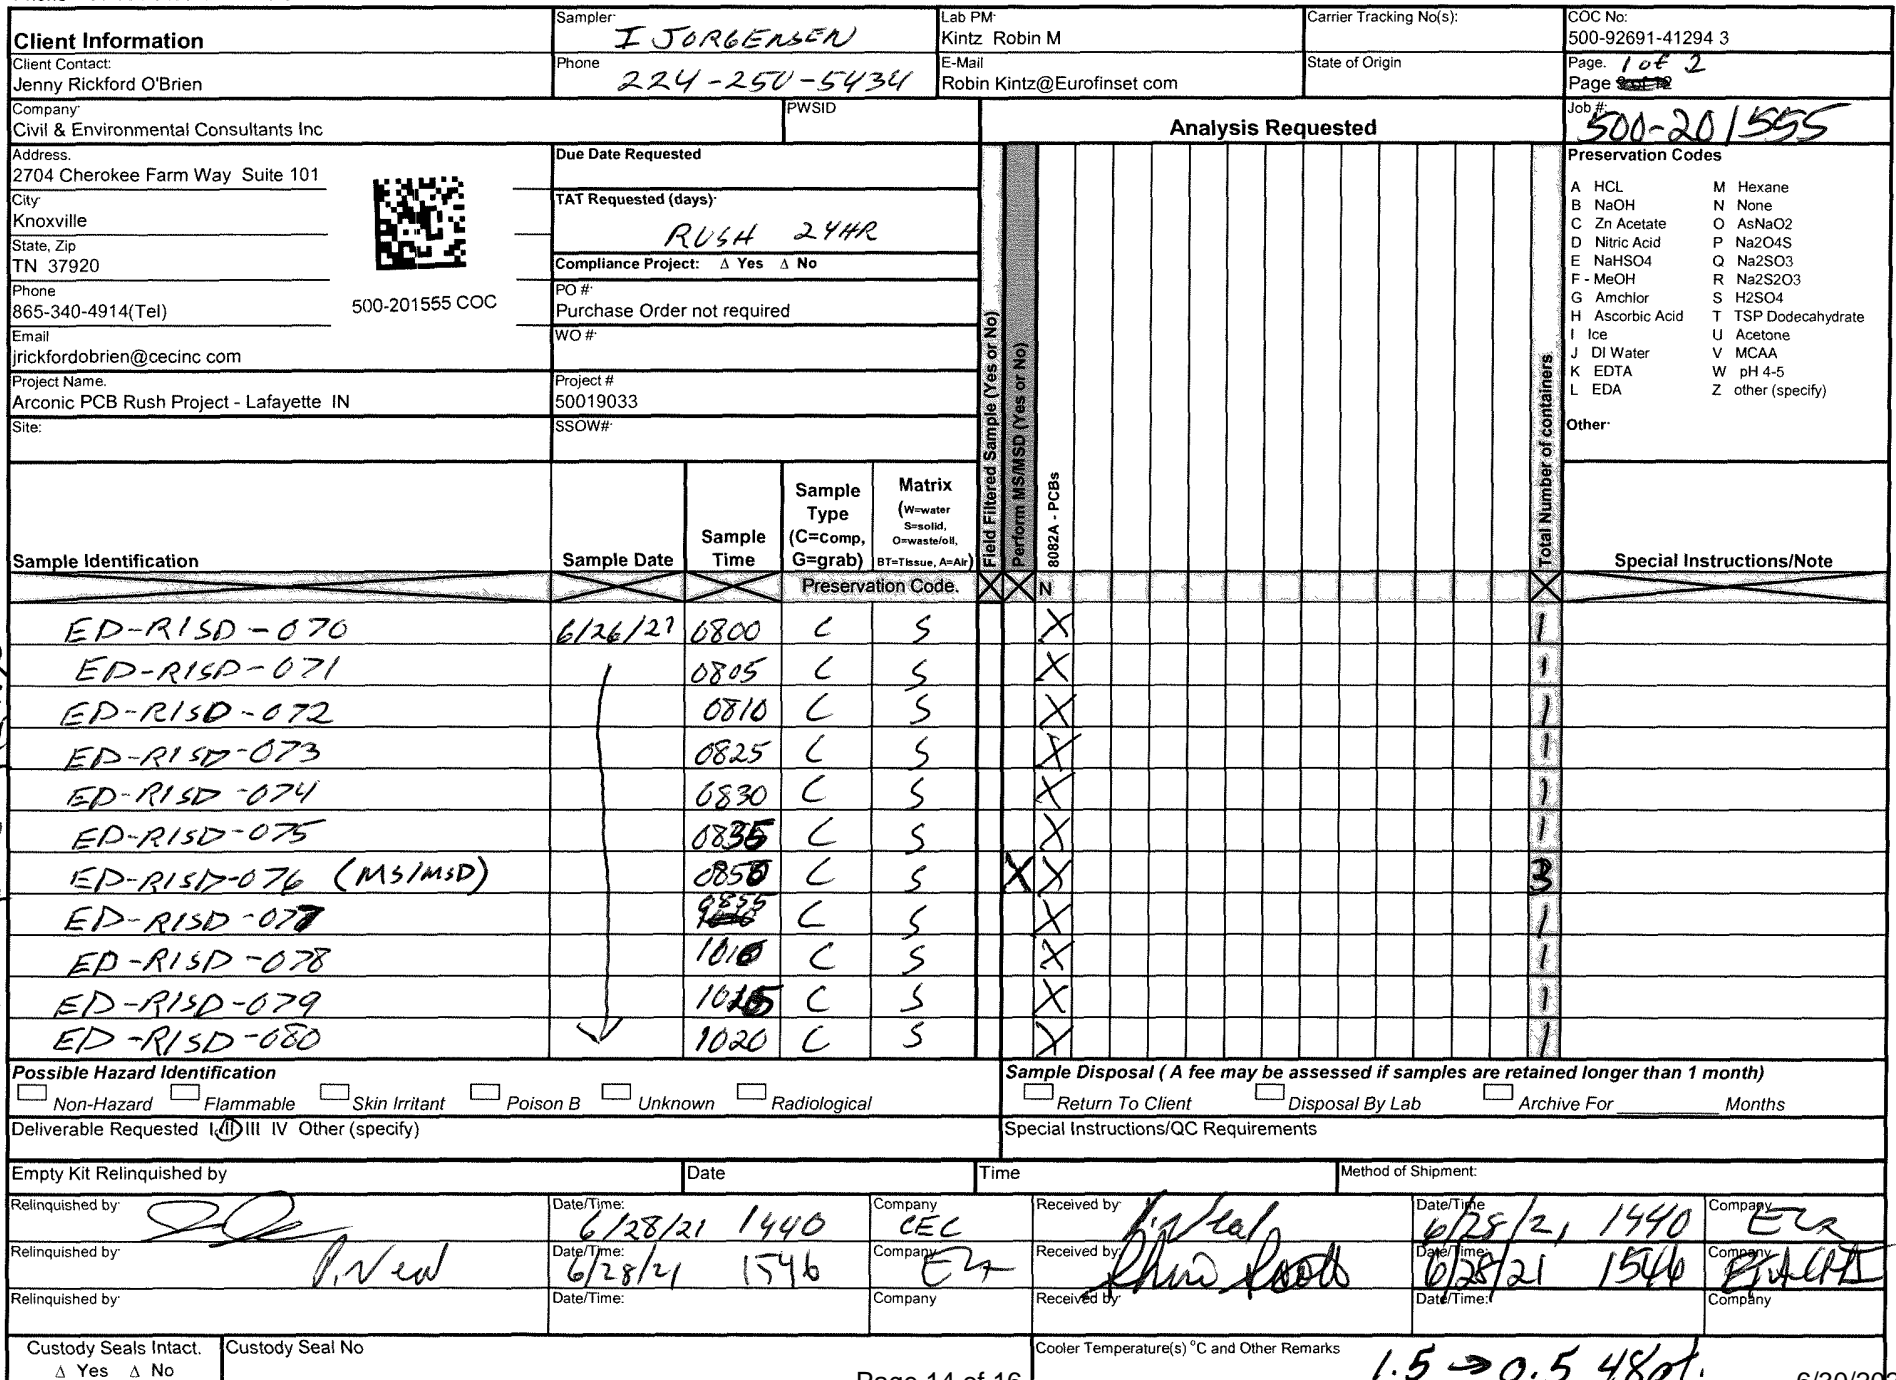 Client Information
Sampler:
I JORGENSEN
Lab PM:
Kintz Robin M
Carrier Tracking No(s):
COC No:
500-92691-41294 3
Client Contact:
Jenny Rickford O'Brien
Phone
224-250-5434
E-Mail
Robin Kintz@Eurofinset com
State of Origin
Page. 1 of 2
Page
Company
Civil & Environmental Consultants Inc
PWSID
Analysis Requested
Job #:
500-201555
Address.
2704 Cherokee Farm Way Suite 101
City
Knoxville
State, Zip
TN 37920
Phone
865-340-4914(Tel)
500-201555 COC
Email
jrickfordobrien@cecinc com
Project Name.
Arconic PCB Rush Project - Lafayette IN
Site:
Due Date Requested
TAT Requested (days):
RUSH 24HR
Compliance Project: Δ Yes Δ No
PO #:
Purchase Order not required
WO #:
Project #
50019033
SSOW#:
Field Filtered Sample (Yes or No)
Perform MS/MSD (Yes or No)
8082A - PCBs
Total Number of containers
Preservation Codes
A HCL M Hexane
B NaOH N None
C Zn Acetate O AsNaO2
D Nitric Acid P Na2O4S
E NaHSO4 Q Na2SO3
F - MeOH R Na2S2O3
G Amchlor S H2SO4
H Ascorbic Acid T TSP Dodecahydrate
I Ice U Acetone
J DI Water V MCAA
K EDTA W pH 4-5
L EDA Z other (specify)
Other:
Sample Identification
Sample Date
Sample Time
Sample Type (C=comp, G=grab)
Matrix (W=water S=solid, O=waste/oil, BT=Tissue, A=Air)
Special Instructions/Note
Preservation Code. X X N X
ED-RISD-070 6/26/21 0800 C S X 1
ED-RISD-071 0805 C S X 1
ED-RISD-072 0810 C S X 1
ED-RISD-073 0825 C S X 1
ED-RISD-074 0830 C S X 1
ED-RISD-075 0835 C S X 1
ED-RISD-076 (MS/MSD) 0850 C S X X 3
ED-RISD-077 0855 C S X 1
ED-RISD-078 1010 C S X 1
ED-RISD-079 1015 C S X 1
ED-RISD-080 1020 C S X 1
Possible Hazard Identification
Non-Hazard Flammable Skin Irritant Poison B Unknown Radiological
Sample Disposal ( A fee may be assessed if samples are retained longer than 1 month)
Return To Client Disposal By Lab Archive For Months
Deliverable Requested I, II, III IV Other (specify)
Special Instructions/QC Requirements
Empty Kit Relinquished by
Date
Time
Method of Shipment:
Relinquished by: Date/Time: 6/28/21 1440 Company CEC Received by: Date/Time 6/28/21 1440 Company
Relinquished by: Date/Time: 6/28/21 1546 Company Received by: Date/Time: 6/28/21 1546 Company
Relinquished by: Date/Time: Company Received by: Date/Time: Company
Custody Seals Intact.
Δ Yes Δ No
Custody Seal No
Cooler Temperature(s) °C and Other Remarks
1.5 → 0.5
Page 14 of 16